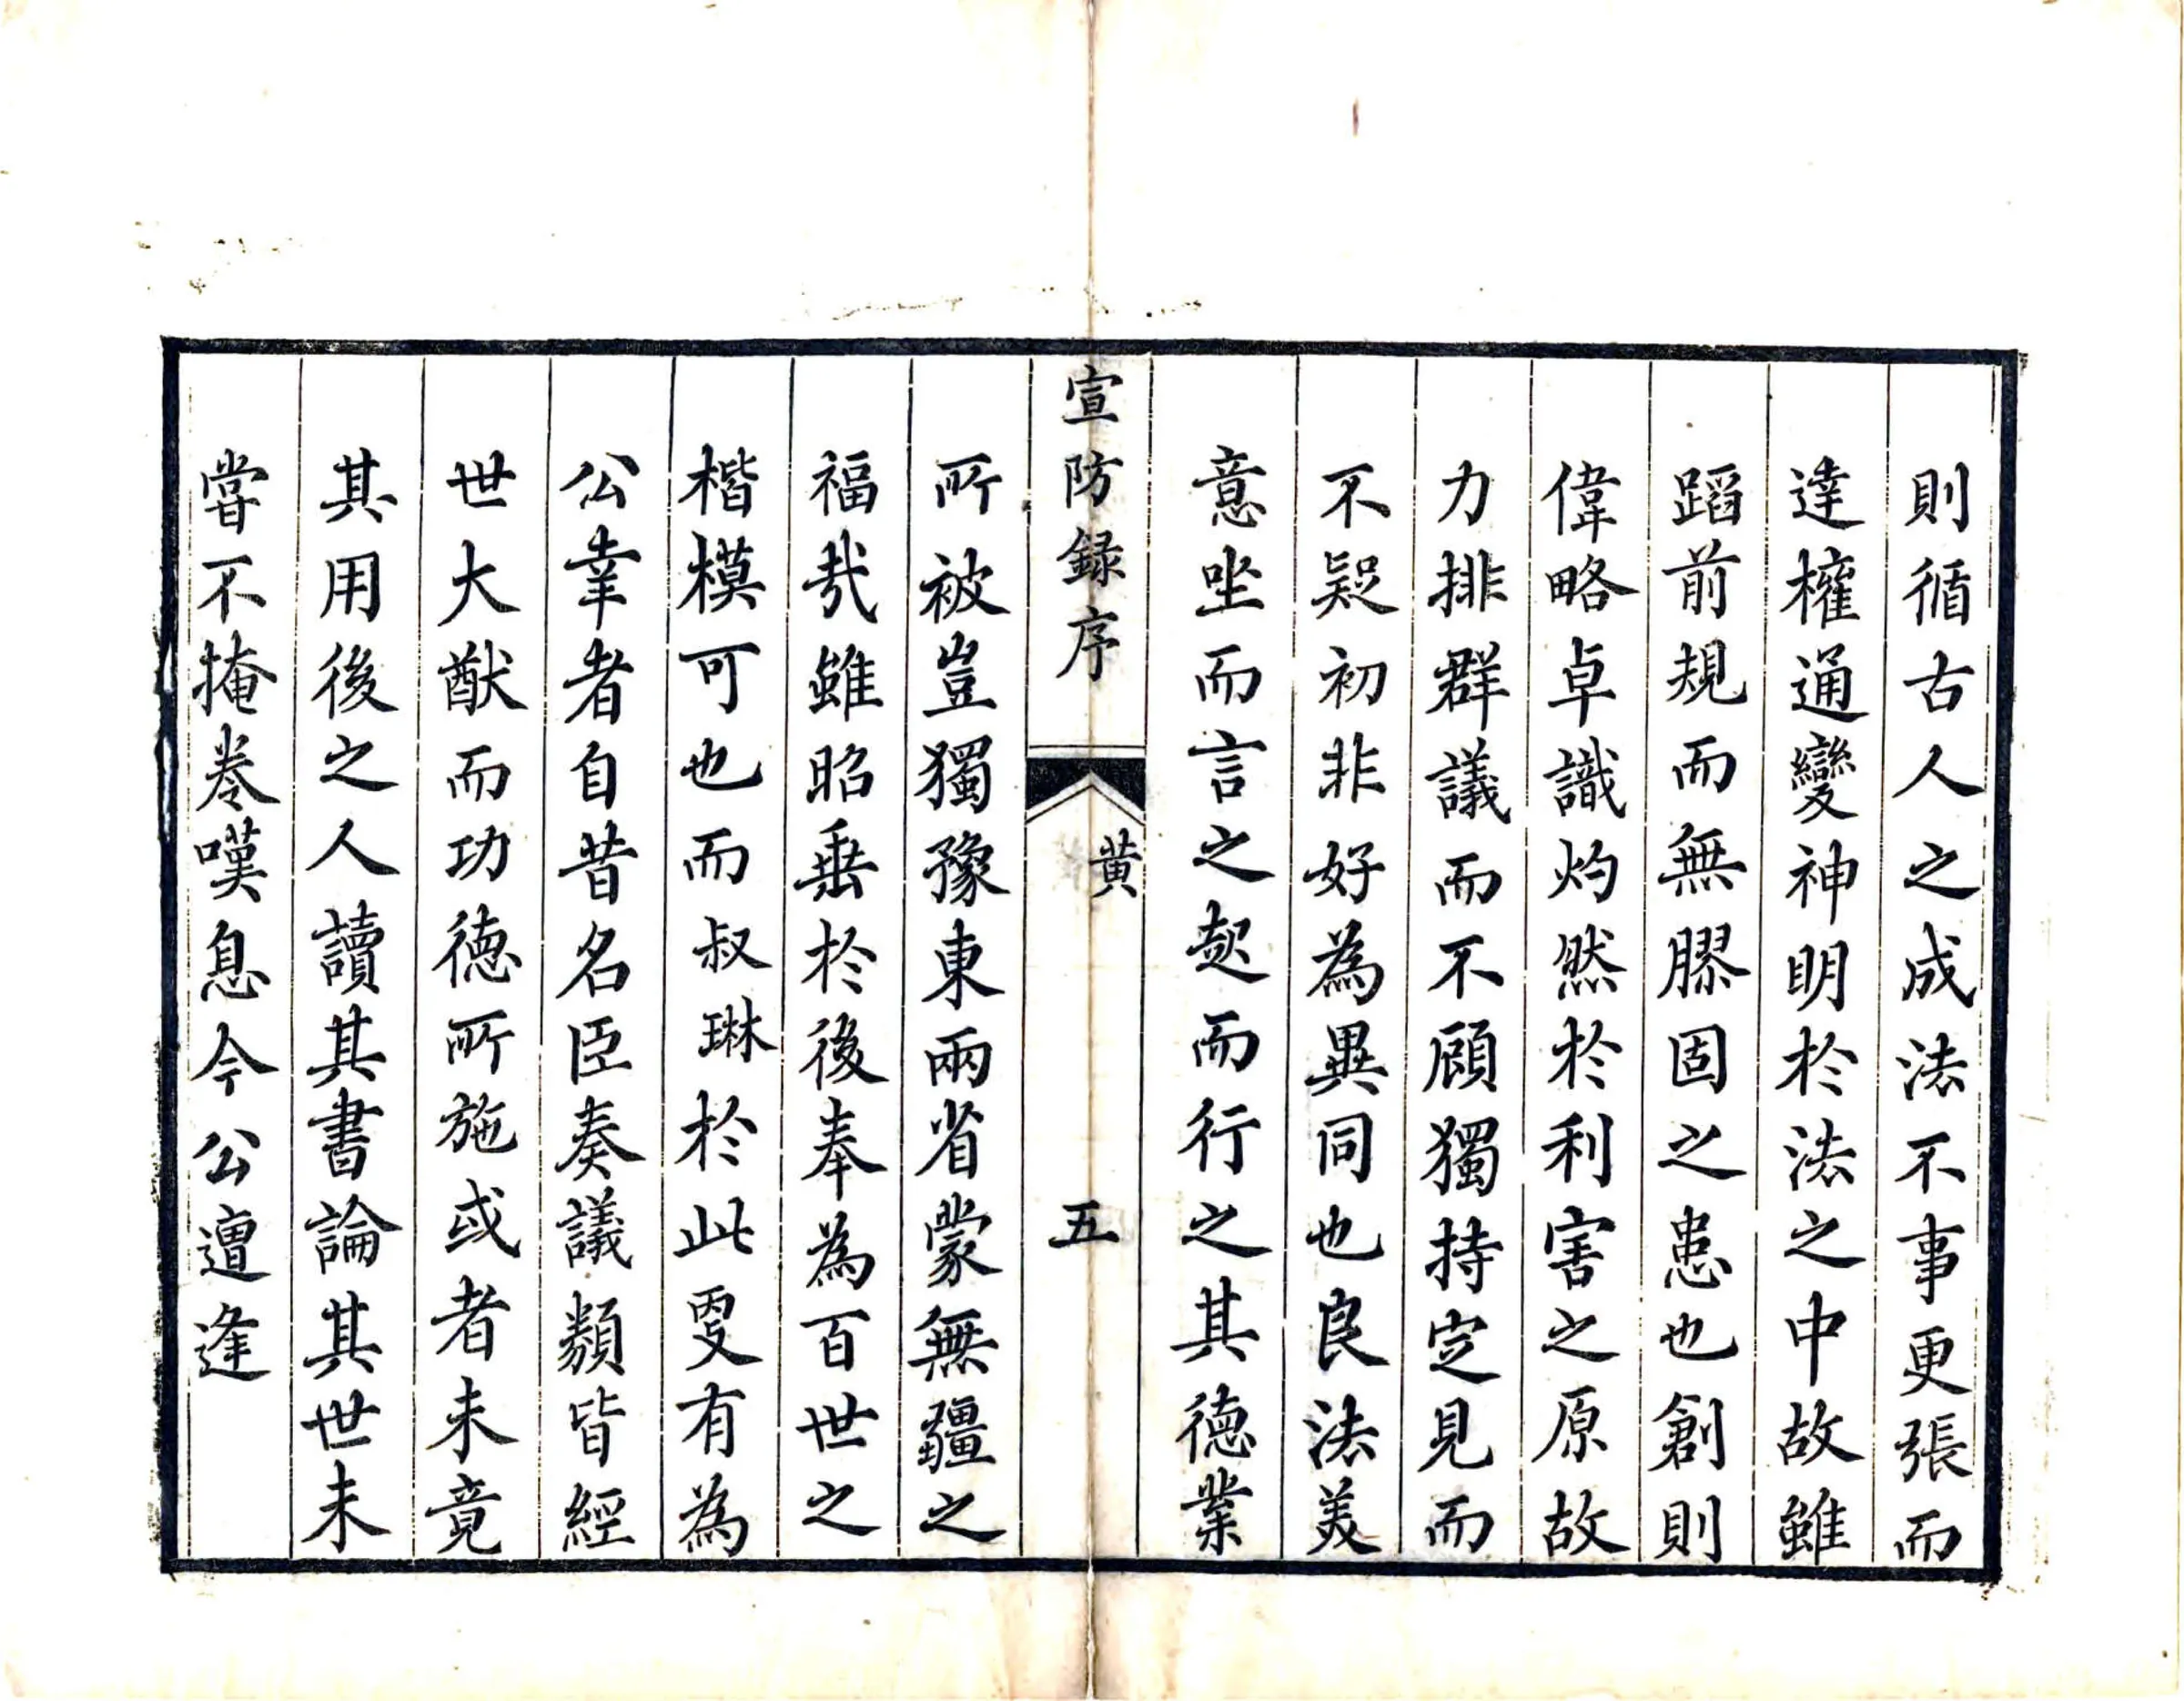 則循古人之成法不事更張而
達權通變神明於法之中故雖
蹈前規而無膠固之患也創則
偉略卓識灼然於利害之原故
力排群議而不顧獨持定見而
不疑初非好為異同也良法美
意坐而言之起而行之其德業
宣防録序
黄
五
所被豈獨豫東兩省蒙無疆之
福哉雖昭垂於後奉為百世之
楷模可也而叔琳於此更有為
公幸者自昔名臣奏議類皆經
世大猷而功德所施或者未竟
其用後之人讀其書論其世未
嘗不掩卷嘆息今公遭逢